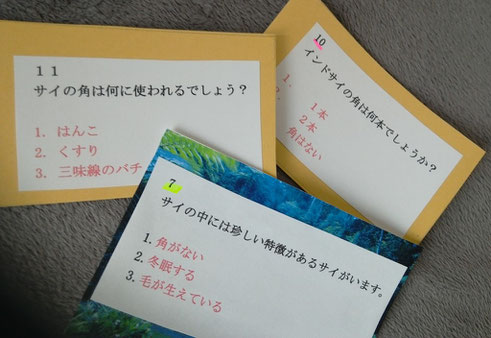 11
サイの角は何に使われるでしょう？
1. はんこ
2. くすり
3. 三味線のバチ
10
インドサイの角は何本でしょうか？
1. 1本
2本
角はない
7
サイの中には珍しい特徴があるサイがいます。
1. 角がない
2. 冬眠する
3. 毛が生えている